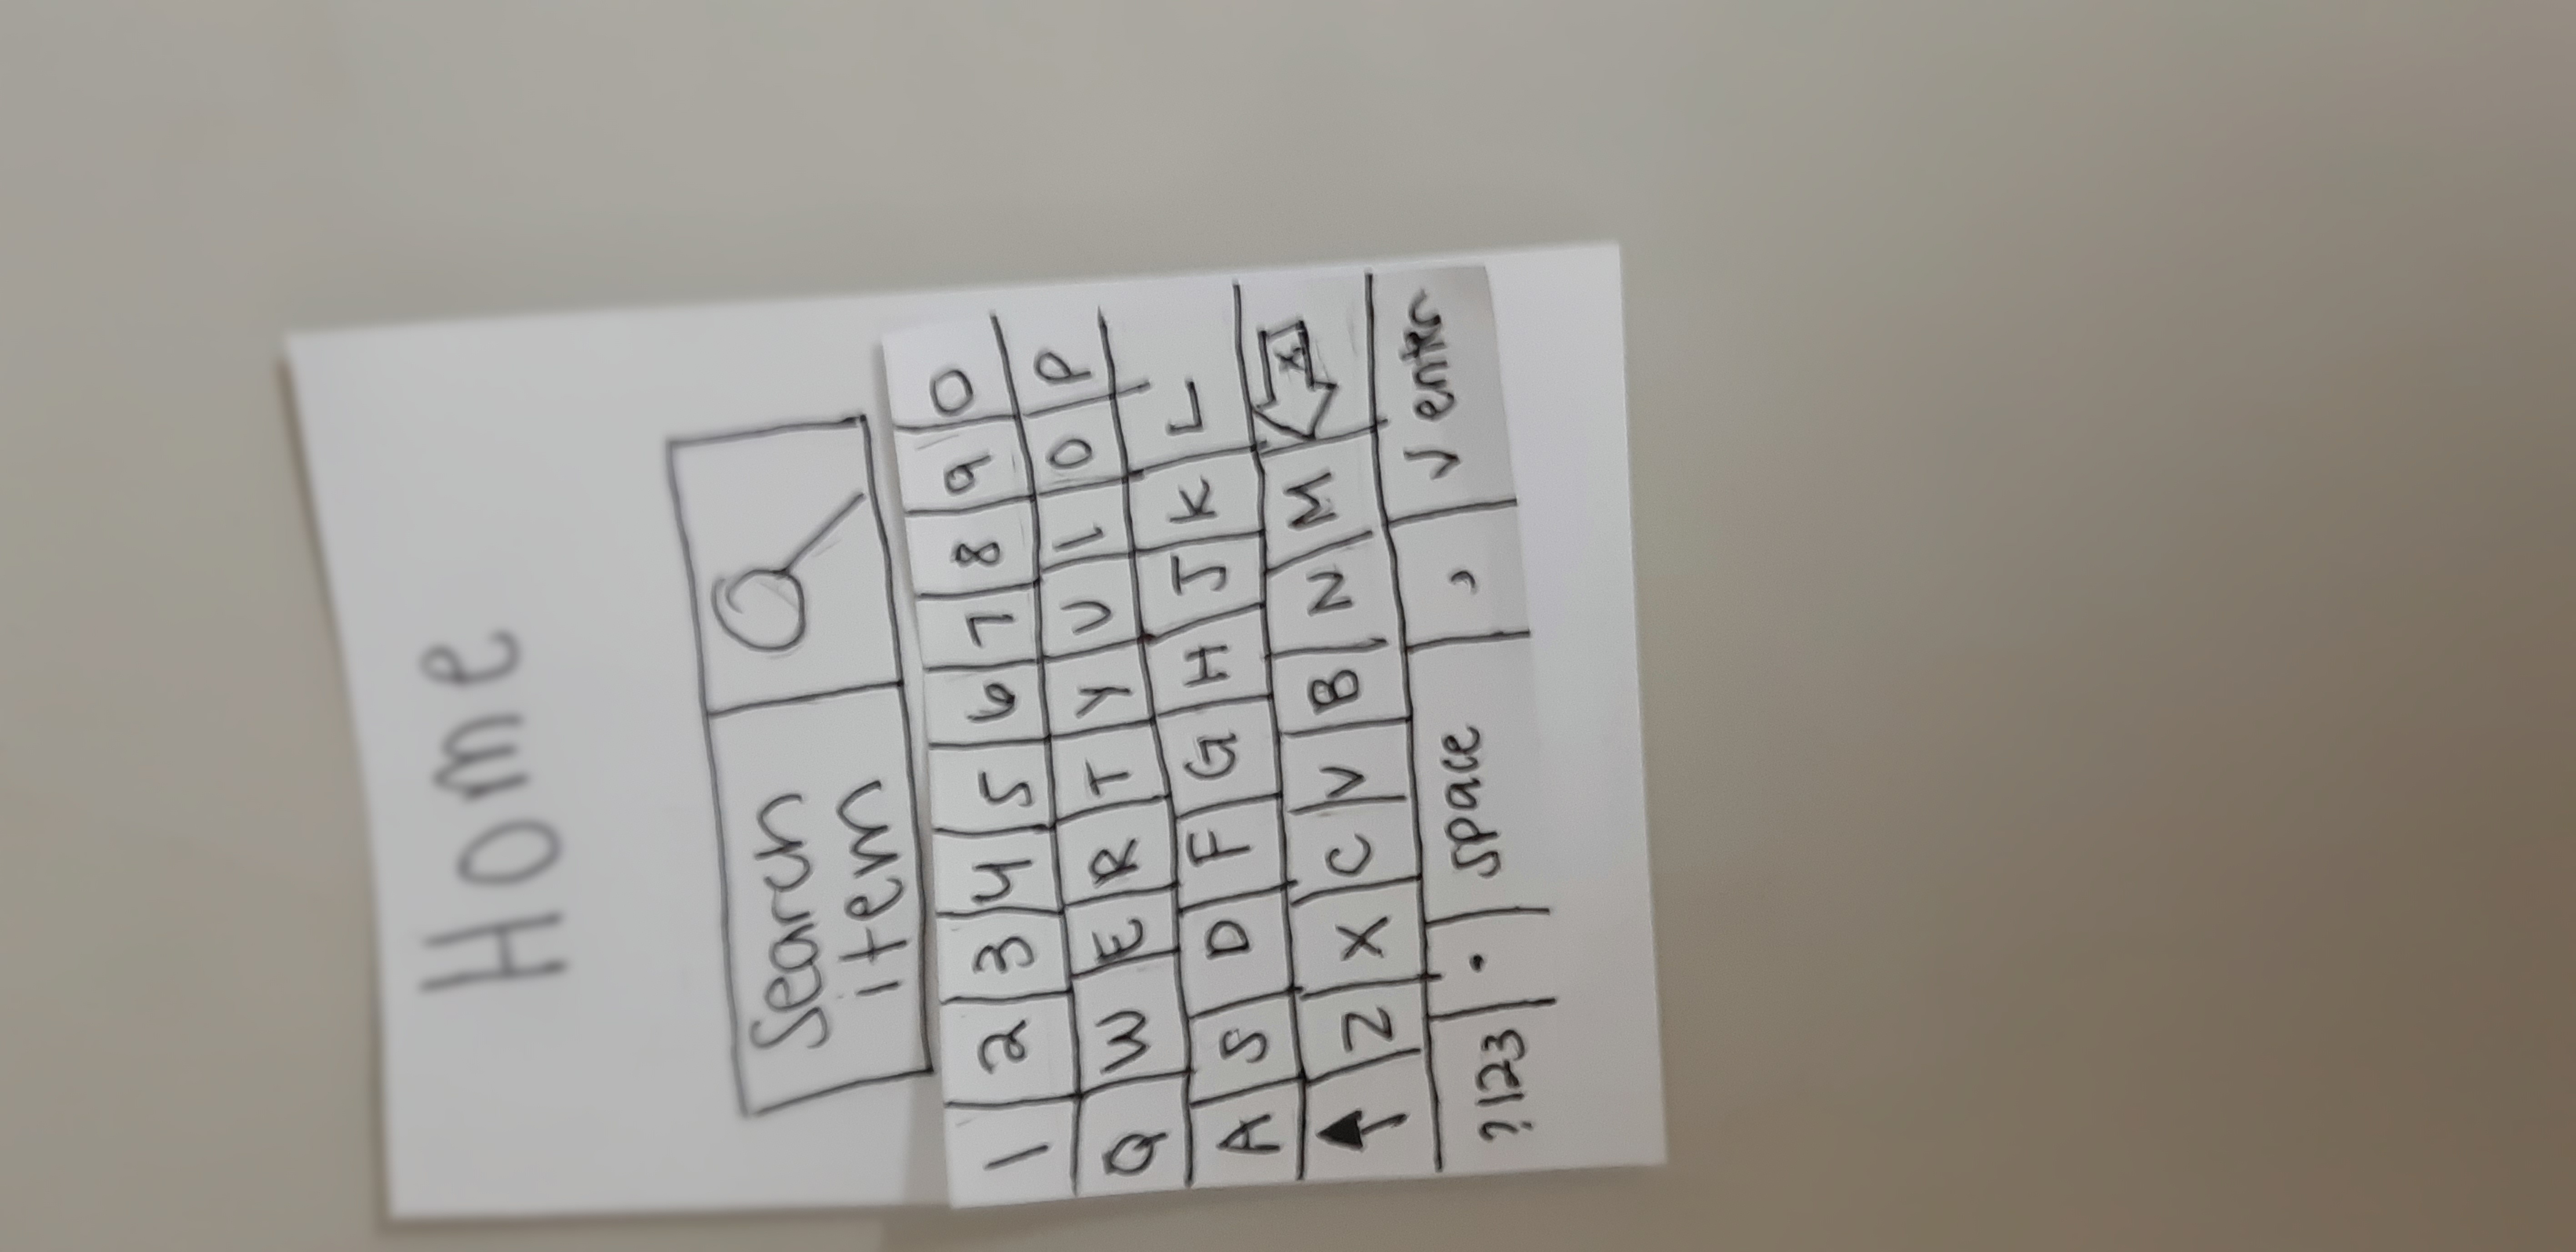 Home
Search
item
1 2 3 4 5 6 7 8 9 0
Q W E R T Y U I O P
A S D F G H J K L
Z X C V B N M x
?123 . space , √ enter